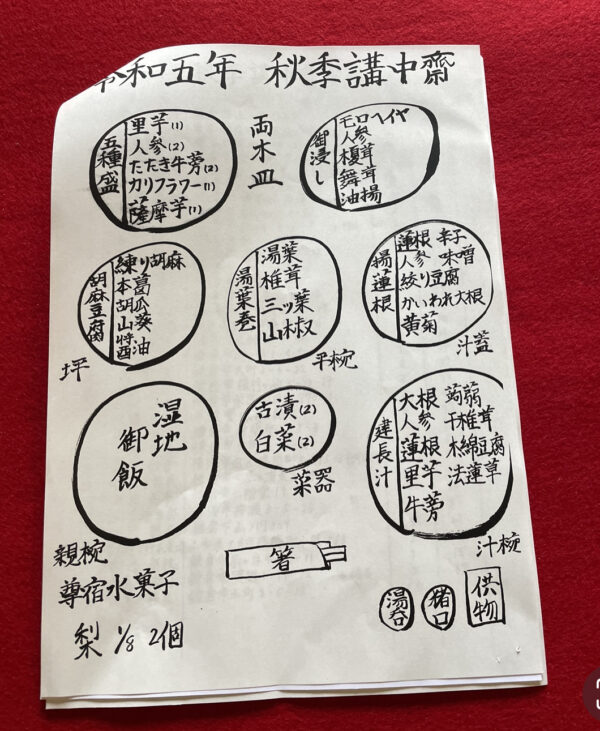 令和五年 秋季講中齋
五種盛
里芋(1)
人参(2)
たたき牛蒡(2)
カリフラワー(1)
薩摩芋(1)
両木皿
御浸し
モロヘイヤ
人参
榎茸
舞茸
油揚
胡麻豆腐
練り胡麻
本葛
胡瓜
山葵
醤油
坪
湯葉巻
湯葉
椎茸
三ッ葉
山椒
平椀
揚蓮根
蓮根 辛子
人参 味噌
絞り豆腐
かいわれ大根
黄菊
汁蓋
湿地
御飯
親椀
古漬(2)
白菜(2)
菜器
建長汁
大根 蒟蒻
人参 干椎茸
蓮根 木綿豆腐
里芋 法蓮草
牛蒡
汁椀
箸
尊宿水菓子
梨 1/8 2個
湯呑
猪口
供物